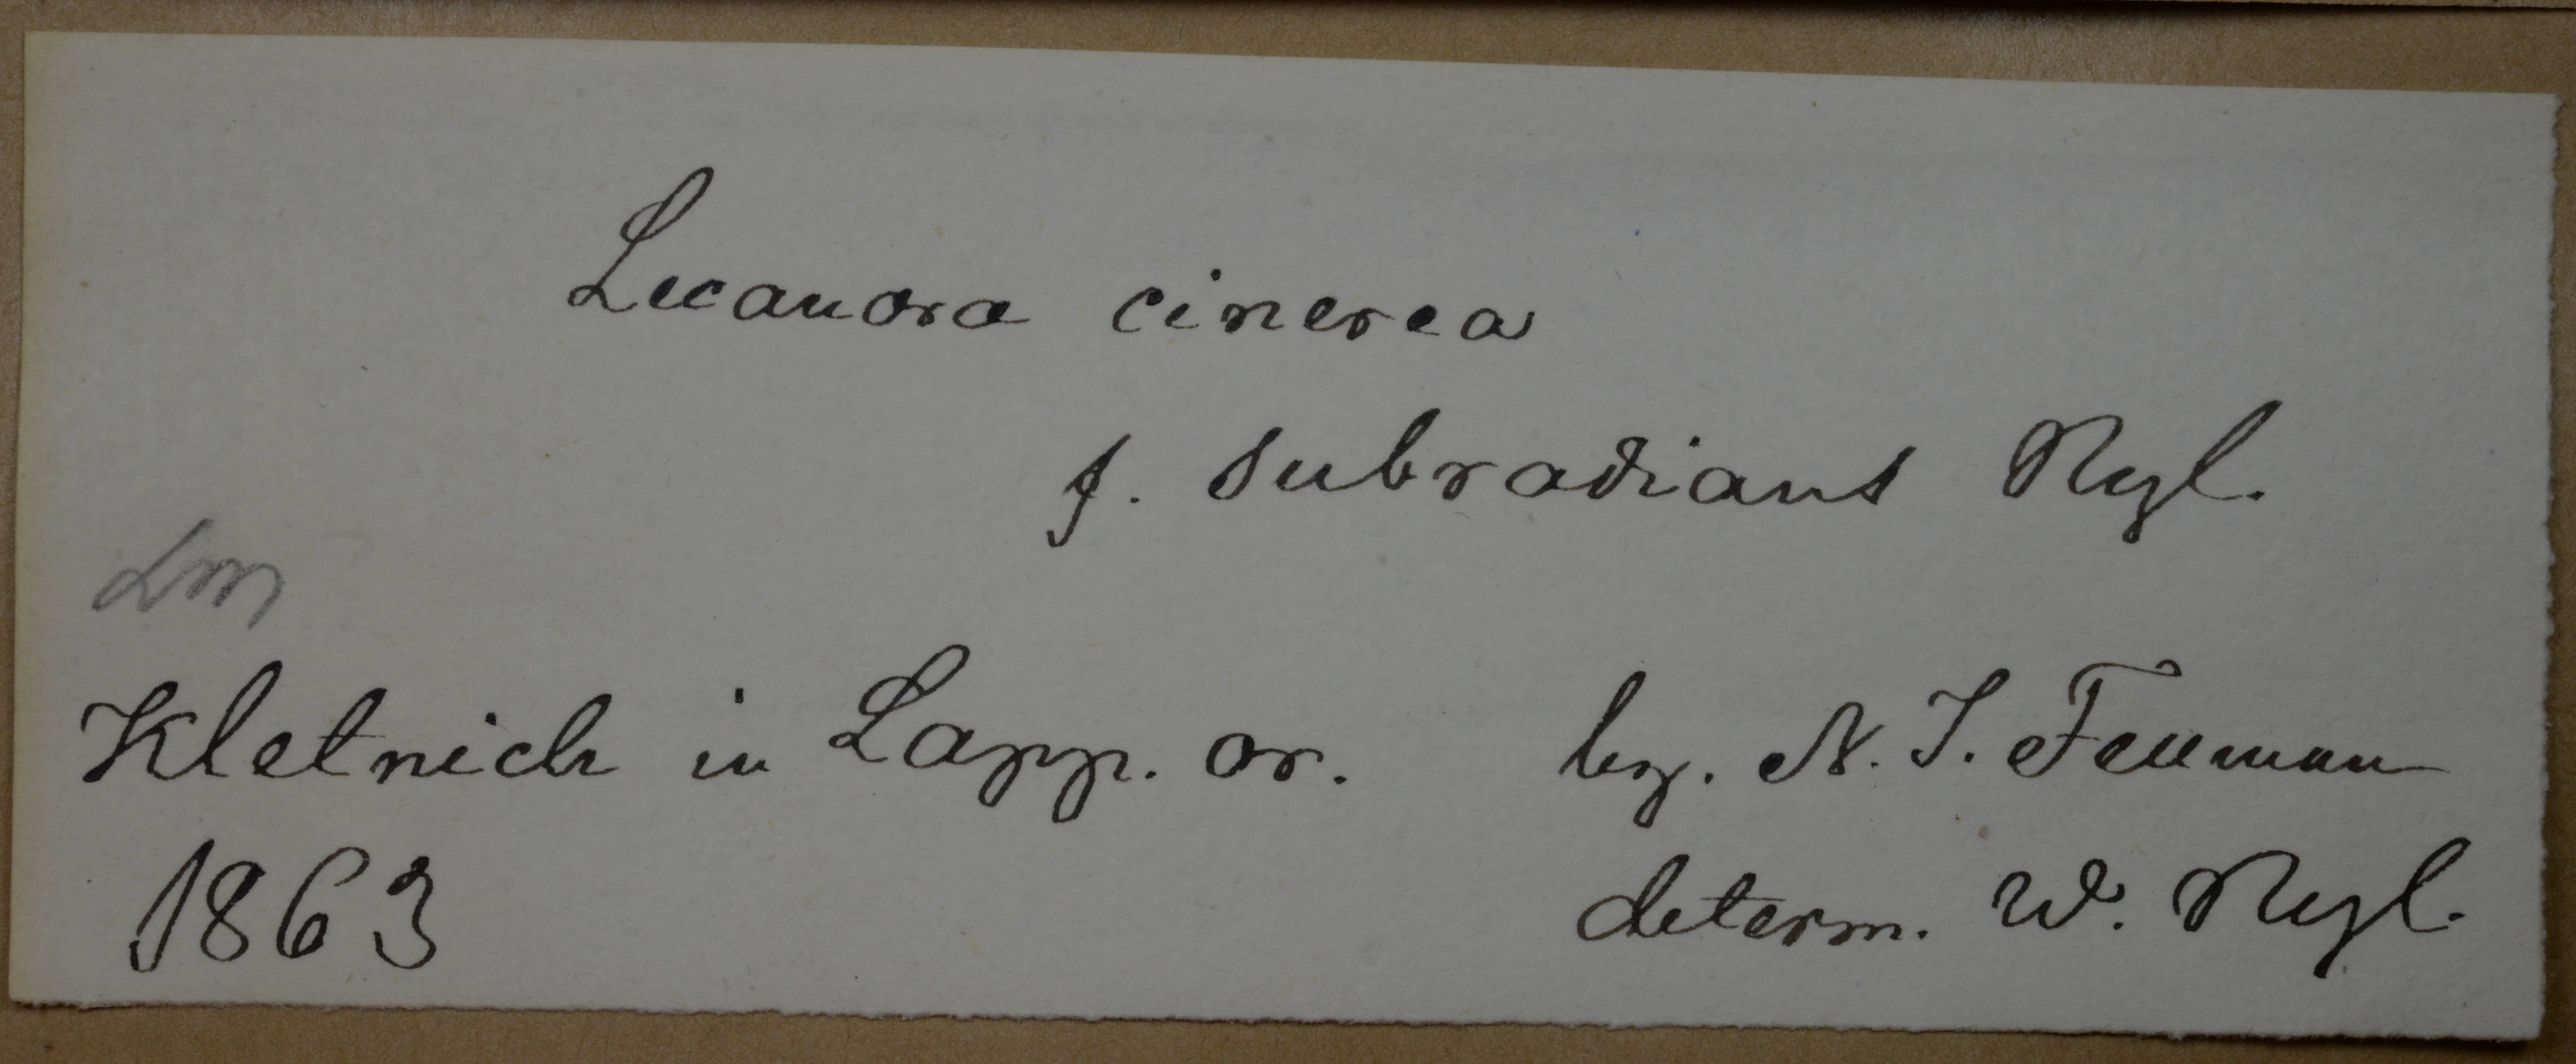 Lecanora cinerea
f. subradians Nyl.
Lm
Kletnich in Lapp. or. leg. N. I. Fellman
1863 determ. W. Nyl.